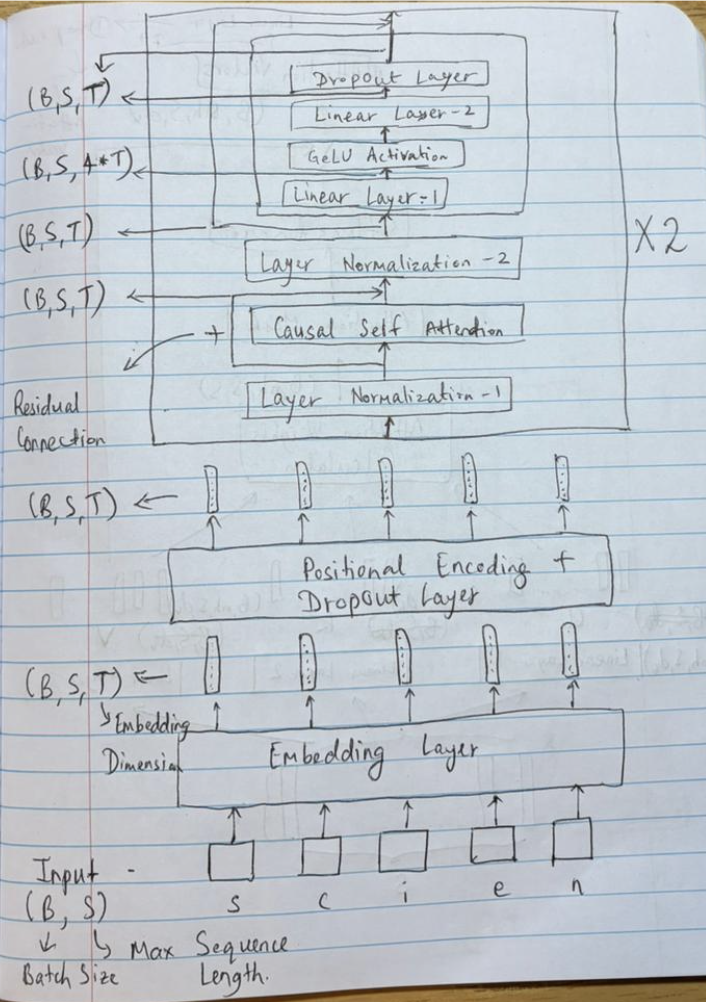 Dropout Layer
(B, S, T)
Linear Layer-2
GeLU Activation
(B, S, 4*T)
Linear Layer-1
(B, S, T)
X2
Layer Normalization - 2
(B, S, T)
+
Causal Self Attention
Layer Normalization - 1
Residual
Connection
(B, S, T)
Positional Encoding +
Dropout Layer
(B, S, T)
Embedding
Dimension
Embedding Layer
Input -
(B, S)
s c i e n
Max Sequence
Length.
Batch Size